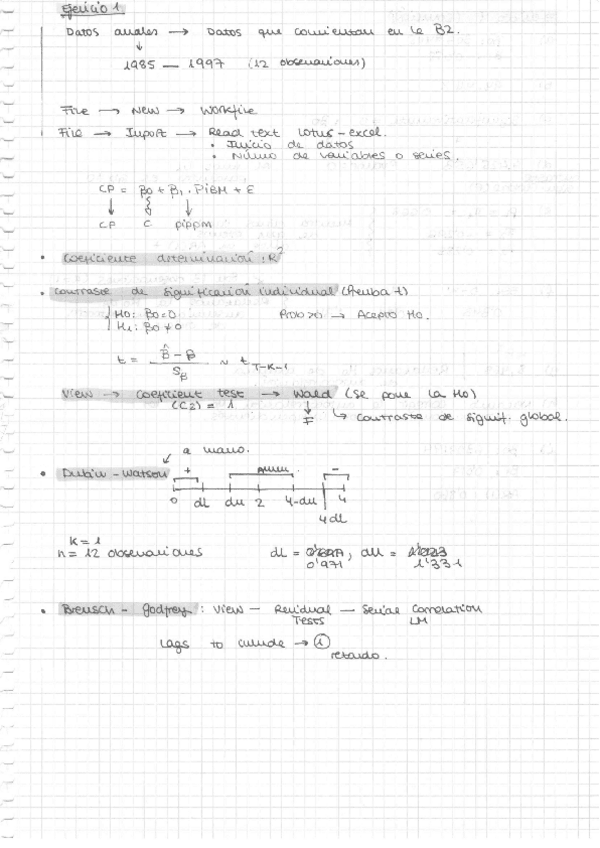 Ejercicio 1
Datos anuales → Datos que comientan en la B2.
↓
1985 — 1997 (12 observaciones)
File → New → Workfile
File → Import → Read text lotus-excel.
• Inicio de datos
• Número de variables o series.
CP = β0 + β1 · PIBM + E
CP C pibpm
• Coeficiente determinación: R²
• Contraste de significación individual (Prueba t)
H0: β0=0 Prob > α → Acepto H0.
H1: β0 ≠ 0
t = (β̂ - β) / Sβ ~ t T-K-1
View → coeficient test → Wald (se pone la H0)
(C2) = 1 F ↳ contraste de signif. global.
a mano.
• Durbin-Watson + -
0 dL du 2 4-du 4
4dL
K = 1
n = 12 observaciones dL = 0'971, du = 1'331
• Breusch-Godfrey: View — Residual Tests — Serial Correlation LM
Lags to include → 1
retardo.